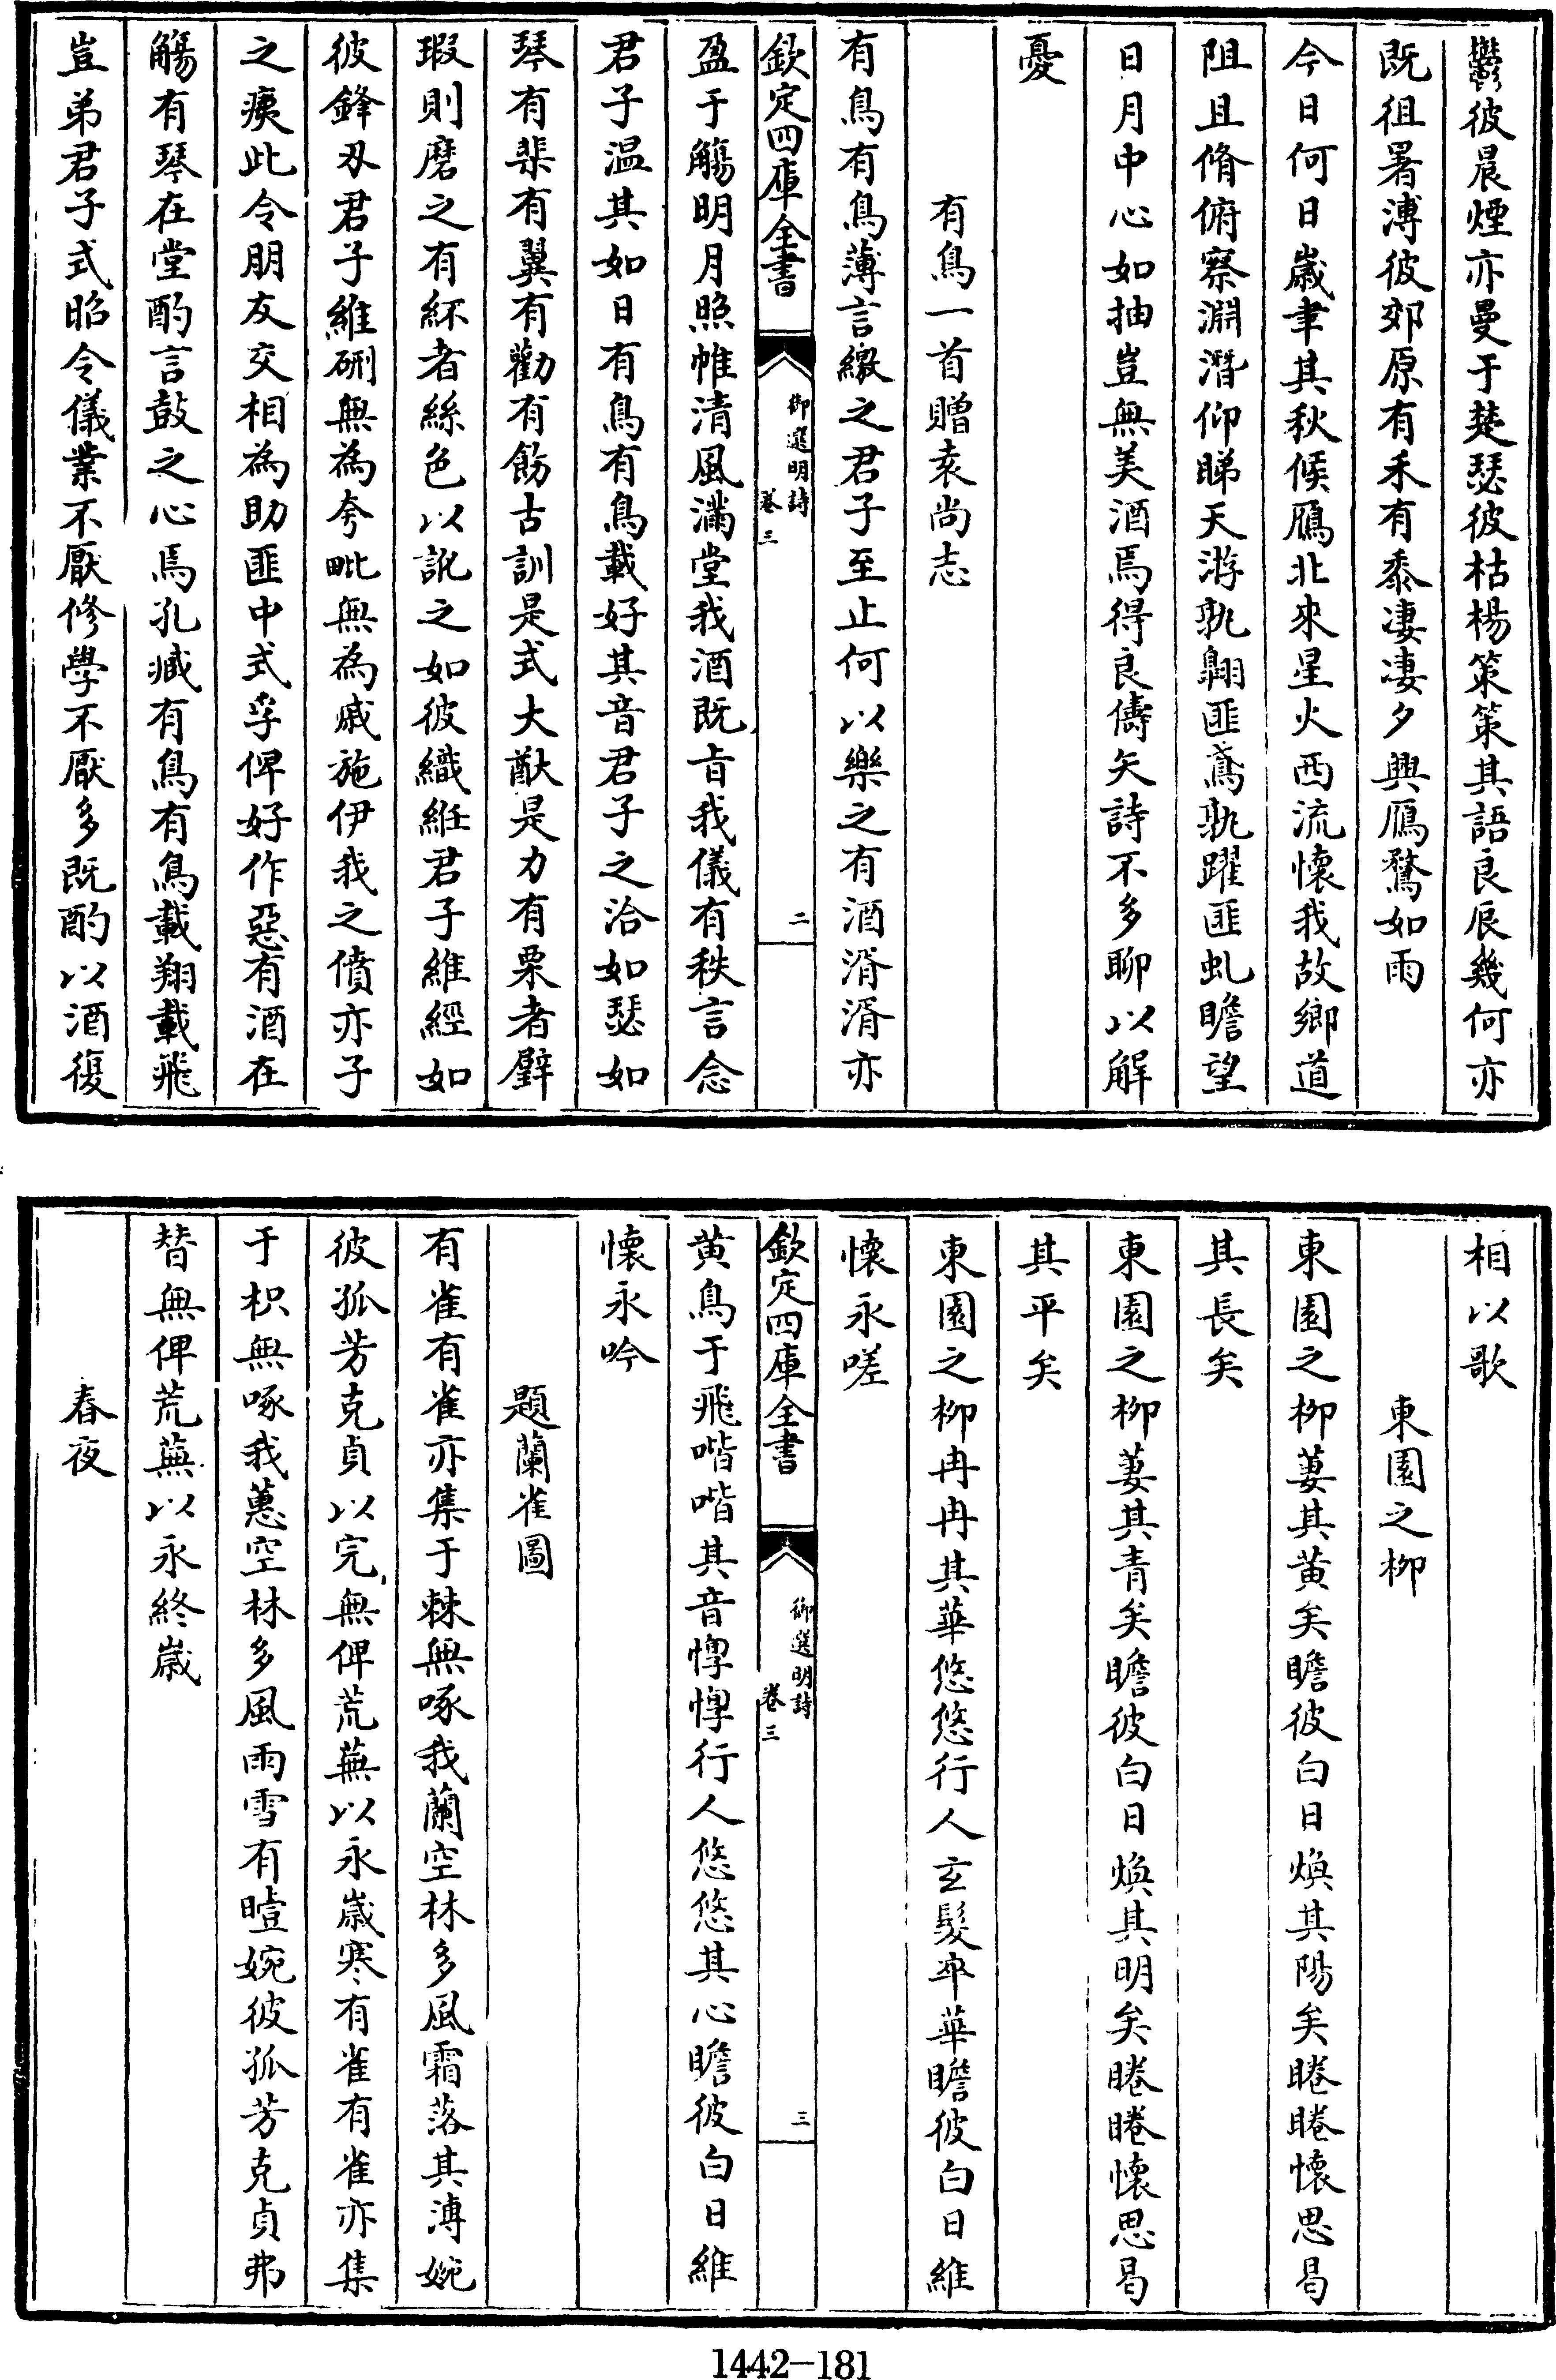 鬱彼晨煙亦曼于楚瑟彼枯楊策策其語良辰幾何亦
既徂署溥彼郊原有禾有黍淒淒夕興鴈鶩如雨
今日何日歲聿其秋候鴈北來星火西流懷我故鄉道
阻且脩俯察淵潛仰睇天游孰翺匪鳶孰躍匪虬瞻望
日月中心如抽豈無美酒焉得良儔矢詩不多聊以解
憂
有鳥一首贈袁尚志
有鳥有鳥薄言繳之君子至止何以樂之有酒湑湑亦
欽定四庫全書
御選明詩
卷三
二
盈于觴明月照帷清風滿堂我酒既旨我儀有秩言念
君子温其如日有鳥有鳥載好其音君子之洽如瑟如
琴有棐有翼有勸有飭古訓是式大猷是力有栗者璧
瑕則磨之有紑者絲色以訛之如彼織絍君子維經如
彼鋒刃君子維硎無為夸毗無為戚施伊我之僨亦子
之瘝此令朋友交相為助匪中式孚俾好作惡有酒在
觴有琴在堂酌言鼓之心焉孔臧有鳥有鳥載翔載飛
豈弟君子式昭令儀業不厭修學不厭多既酌以酒復
相以歌
東園之柳
東園之柳萋其黄矣瞻彼白日煥其陽矣睠睠懷思曷
其長矣
東園之柳萋其青矣瞻彼白日煥其明矣睠睠懷思曷
其平矣
東園之柳冉冉其華悠悠行人玄髮卒華瞻彼白日維
懷永嗟
欽定四庫全書
御選明詩
卷三
三
黄鳥于飛喈喈其音惸惸行人悠悠其心瞻彼白日維
懷永吟
題蘭雀圖
有雀有雀亦集于棘無啄我蘭空林多風霜落其溥婉
彼孤芳克貞以完無俾荒蕪以永歲寒有雀有雀亦集
于枳無啄我蕙空林多風雨雪有曀婉彼孤芳克貞弗
替無俾荒蕪以永終歲
春夜
1442-181